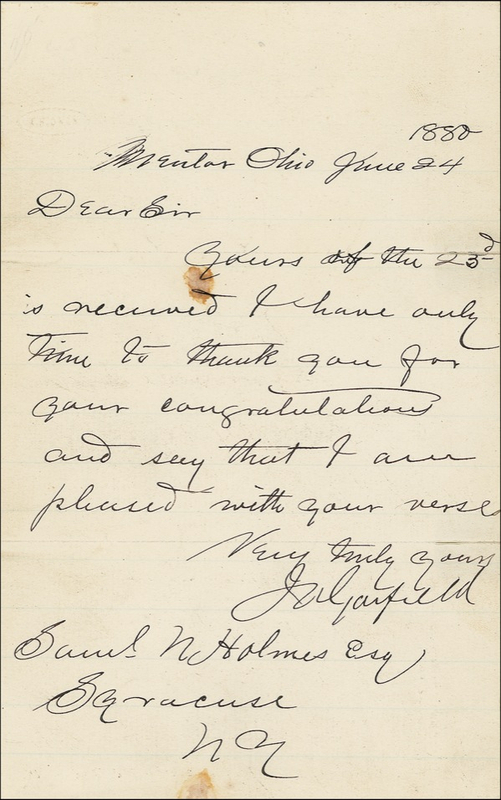 1880
Mentor Ohio June 24
Dear Sir
Yours of the 23d
is received I have only
time to thank you for
your congratulations
and say that I am
pleased with your verse
Very truly yours
J A Garfield
Saml. N Holmes Esq
Syracuse
N Y